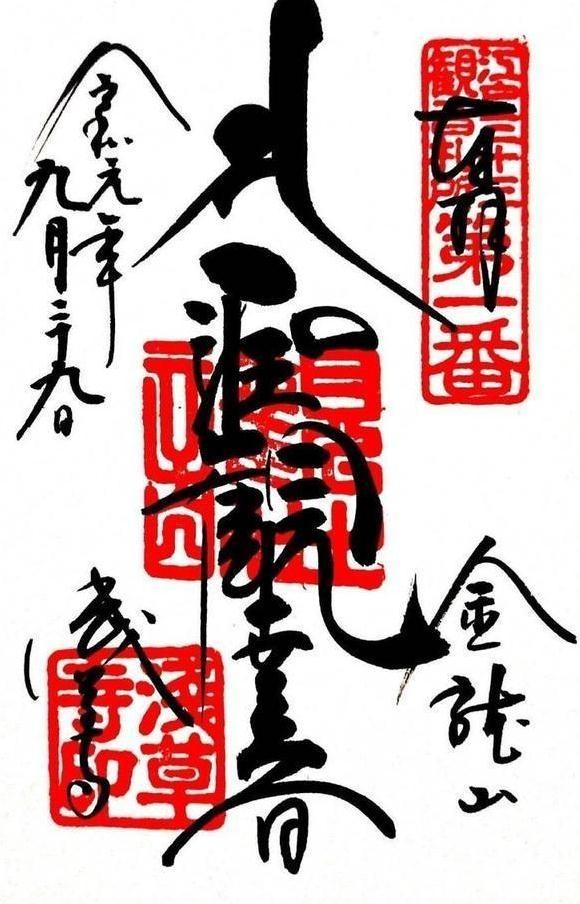 奉拝
江戸三十三
観音札所
第一番
金龍山
聖観世音
浅草寺
浅草
寺印
令和元年
九月二十九日